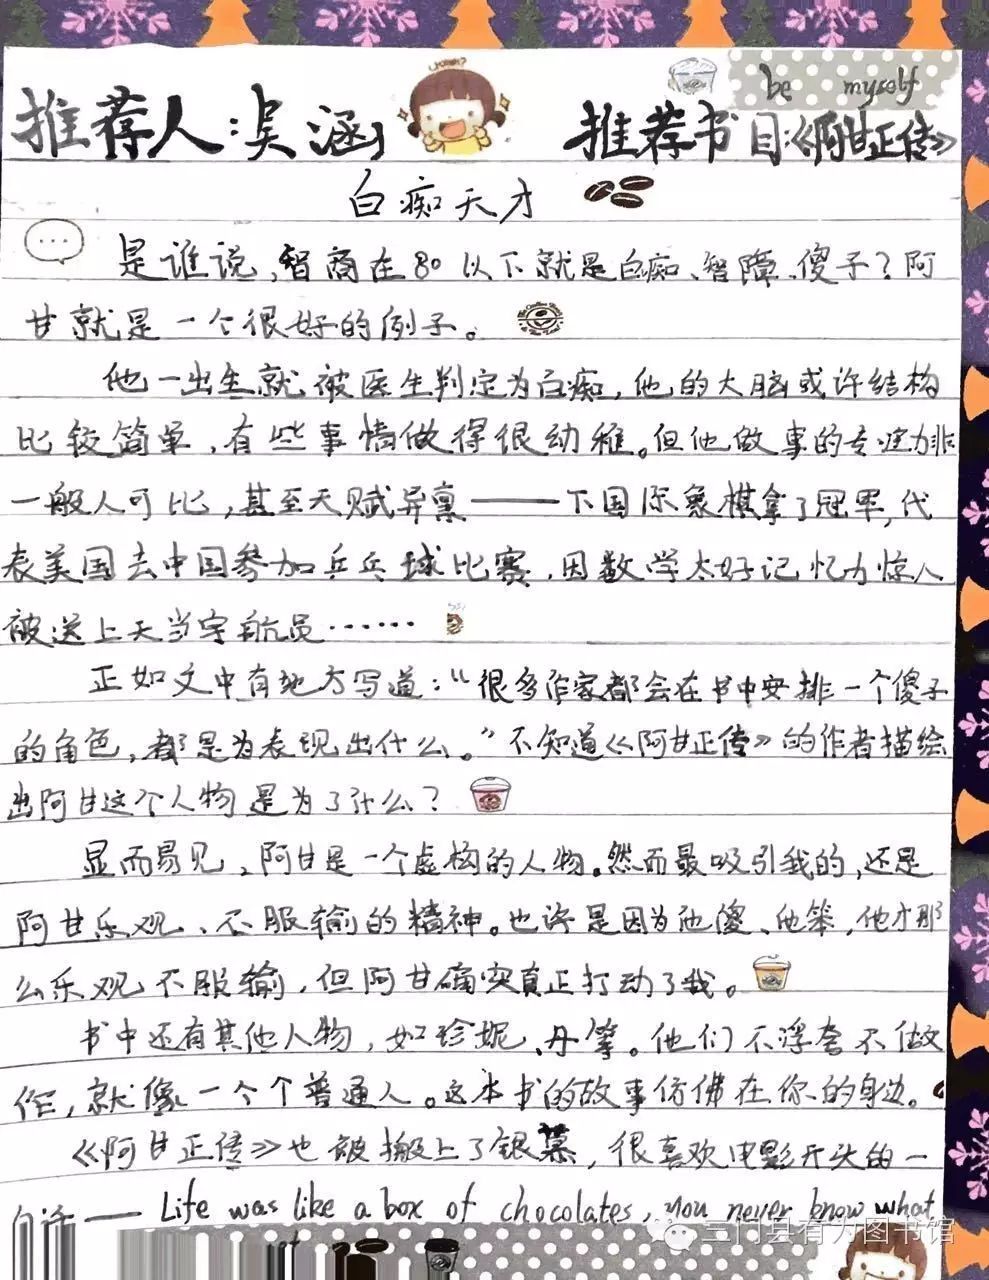 be myself
推荐人:吴涵 推荐书目:《阿甘正传》
白痴天才
是谁说,智商在80以下就是白痴、智障、傻子?阿
甘就是一个很好的例子。
他一出生就被医生判定为白痴,他的大脑或许结构
比较简单,有些事情做得很幼稚。但他做事的专注力非
一般人可比,甚至天赋异禀——下国际象棋拿了冠军,代
表美国去中国参加乒乓球比赛,因数学太好记忆力惊人
被送上天当宇航员……
正如文中有地方写道:“很多作家都会在书中安排一个傻子
的角色,都是为表现出什么。”不知道《阿甘正传》的作者描绘
出阿甘这个人物是为了什么?
显而易见,阿甘是一个虚构的人物。然而最吸引我的,还是
阿甘乐观、不服输的精神。也许是因为他傻、他笨,他才那
么乐观不服输,但阿甘确实真正打动了我。
书中还有其他人物,如珍妮、丹等。他们不浮夸不做
作,就像一个个普通人。这本书的故事仿佛在你的身边。
《阿甘正传》也被搬上了银幕,很喜欢电影开头的一
句话——Life was like a box of chocolates, you never know what
三门县有为图书馆